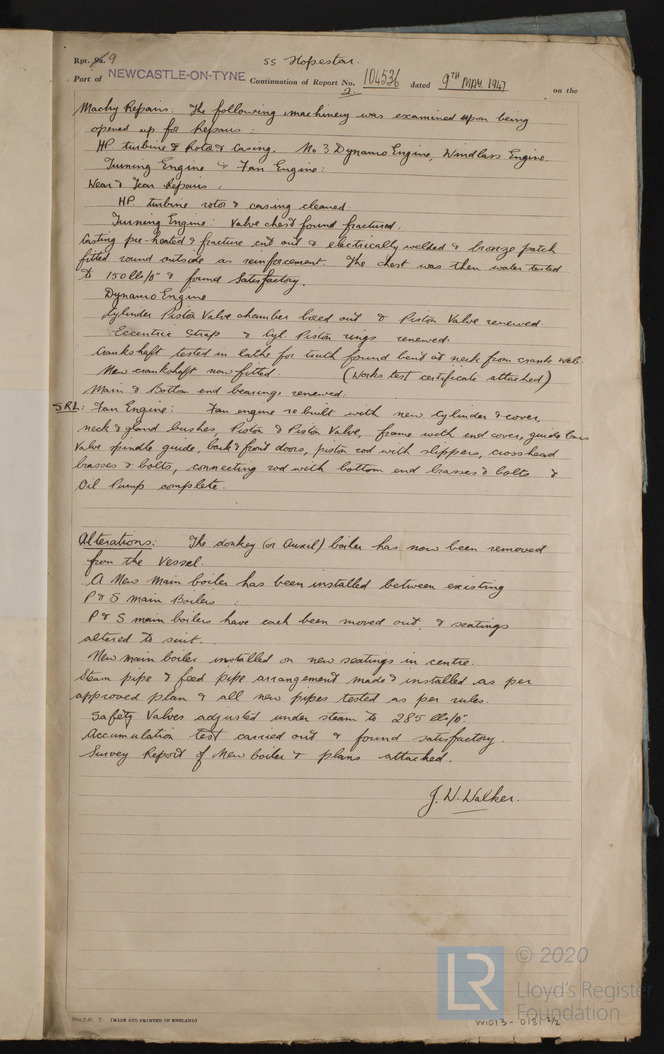 Rpt. 9
ss Hopestar.
Port of NEWCASTLE-ON-TYNE Continuation of Report No. 104536 dated 9TH MAY 1947 on the
2
Machy Repairs: The following machinery was examined upon being
opened up for Repairs:
HP. turbine & Rotor & Casing. No 3 Dynamo Engine, Windlass Engine.
Turning Engine & Fan Engine:
Wear & Tear Repairs.
HP turbine rotor & casing cleaned.
Turning Engine: Valve chest found fractured.
Casting pre-heated & fracture cut out & electrically welded & bronze patch
fitted round outside as reinforcement. The chest was then water tested
to 150 lb/□" & found Satisfactory.
Dynamo Engine
Cylinder Piston Valve chamber bored out & Piston Valve renewed.
Eccentric Strap & Cyl. Piston rings renewed.
Crankshaft tested in lathe for truth found bent at neck from crank web.
New crankshaft now fitted. (Works test certificate attached)
Main & Bottom end bearings renewed.
SRL: Fan Engine: Fan engine rebuilt with new Cylinder & cover,
neck & gland bushes, Piston & Piston Valve, frame with end covers, guide bars
Valve spindle guide, back & front doors, piston rod with slippers, crosshead
brasses & bolts, connecting rod with bottom end brasses & bolts &
Oil Pump complete.
Alterations: The donkey (or Auxil) boiler has now been removed
from the Vessel.
A New Main boiler has been installed between existing
P & S Main Boilers.
P & S main boilers have each been moved out, & seatings
altered to suit.
New main boiler installed on new seatings in centre.
Steam pipe & feed pipe arrangement made & installed as per
approved plan & all new pipes tested as per rules.
Safety Valves adjusted under steam to 285 lb/□".
Accumulation test carried out & found satisfactory.
Survey Report of New boiler & plans attached.
J. W. Walker.
(MADE AND PRINTED IN ENGLAND)
W1013 - 0181 2/2
LR
© 2020
Lloyd's Register
Foundation